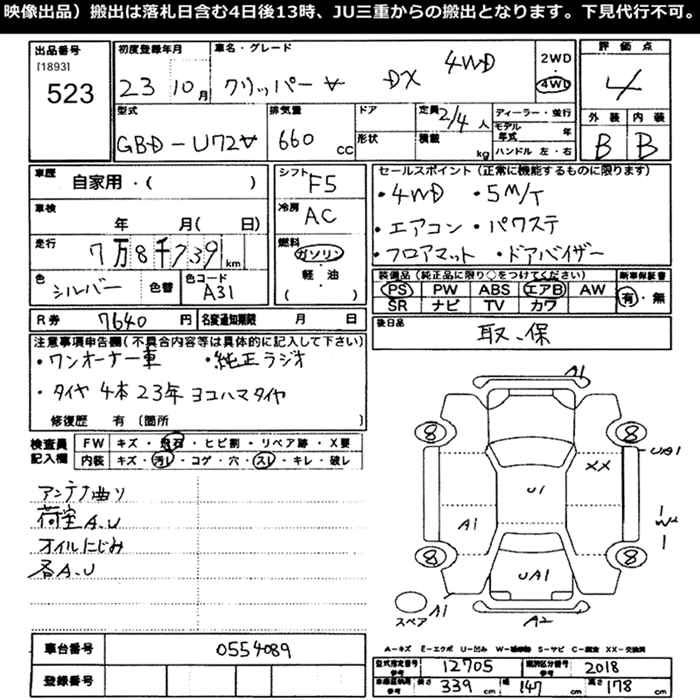 映像出品）搬出は落札日含む4日後13時、JU三重からの搬出となります。下見代行不可。
出品番号
[1893]
523
初度登録年月
23 10月
車名・グレード
クリッパー V DX 4WD
2WD
4WD
評価点
4
外装 内装
B B
型式
GBD-U72V
排気量
660 CC
ドア
形状
定員 2/4人
積載 kg
ディーラー・並行
モデル年式 年
ハンドル 左・右
車歴
自家用・（ ）
車検
年 月（ 日）
走行
7万8千739km
色
シルバー
色替
色コード
A31
シフト
F5
冷房
AC
燃料
ガソリン
軽・油
（ ）
セールスポイント（正常に機能するものに限ります）
・4WD ・5M/T
・エアコン ・パワステ
・フロアマット ・ドアバイザー
装備品（純正品に限り○をつけてください）
PS PW ABS エアB AW
SR ナビ TV カワ
新車保証書
有・無
R券 7640円
名変通知期限 月 日
後日品
取、保
注意事項申告欄（不具合内容等は具体的に記入して下さい）
・ワンオーナー車 ・純正ラジオ
・タイヤ 4本 23年 ヨコハマタイヤ
修復歴 有〔箇所 〕
検査員記入欄
FW キズ・飛石・ヒビ割・リペア跡・X要
内装 キズ・汚レ・コゲ・穴・スレ・キレ・破レ
アンテナ曲り
荷室A.U
オイルにじみ
各A.U
A1
8 8
UA1
XX
U1
A1
W
8 8
UA1
スペア
A1
A2
車台番号 0554089
登録番号
A-キズ E-エクボ U-凹み W-補修跡 S-サビ C-腐食 XX-交換済
型式指定番号 参考 12705
類別区分番号 参考 2018
長さ 339cm 幅 147cm 高さ 178cm